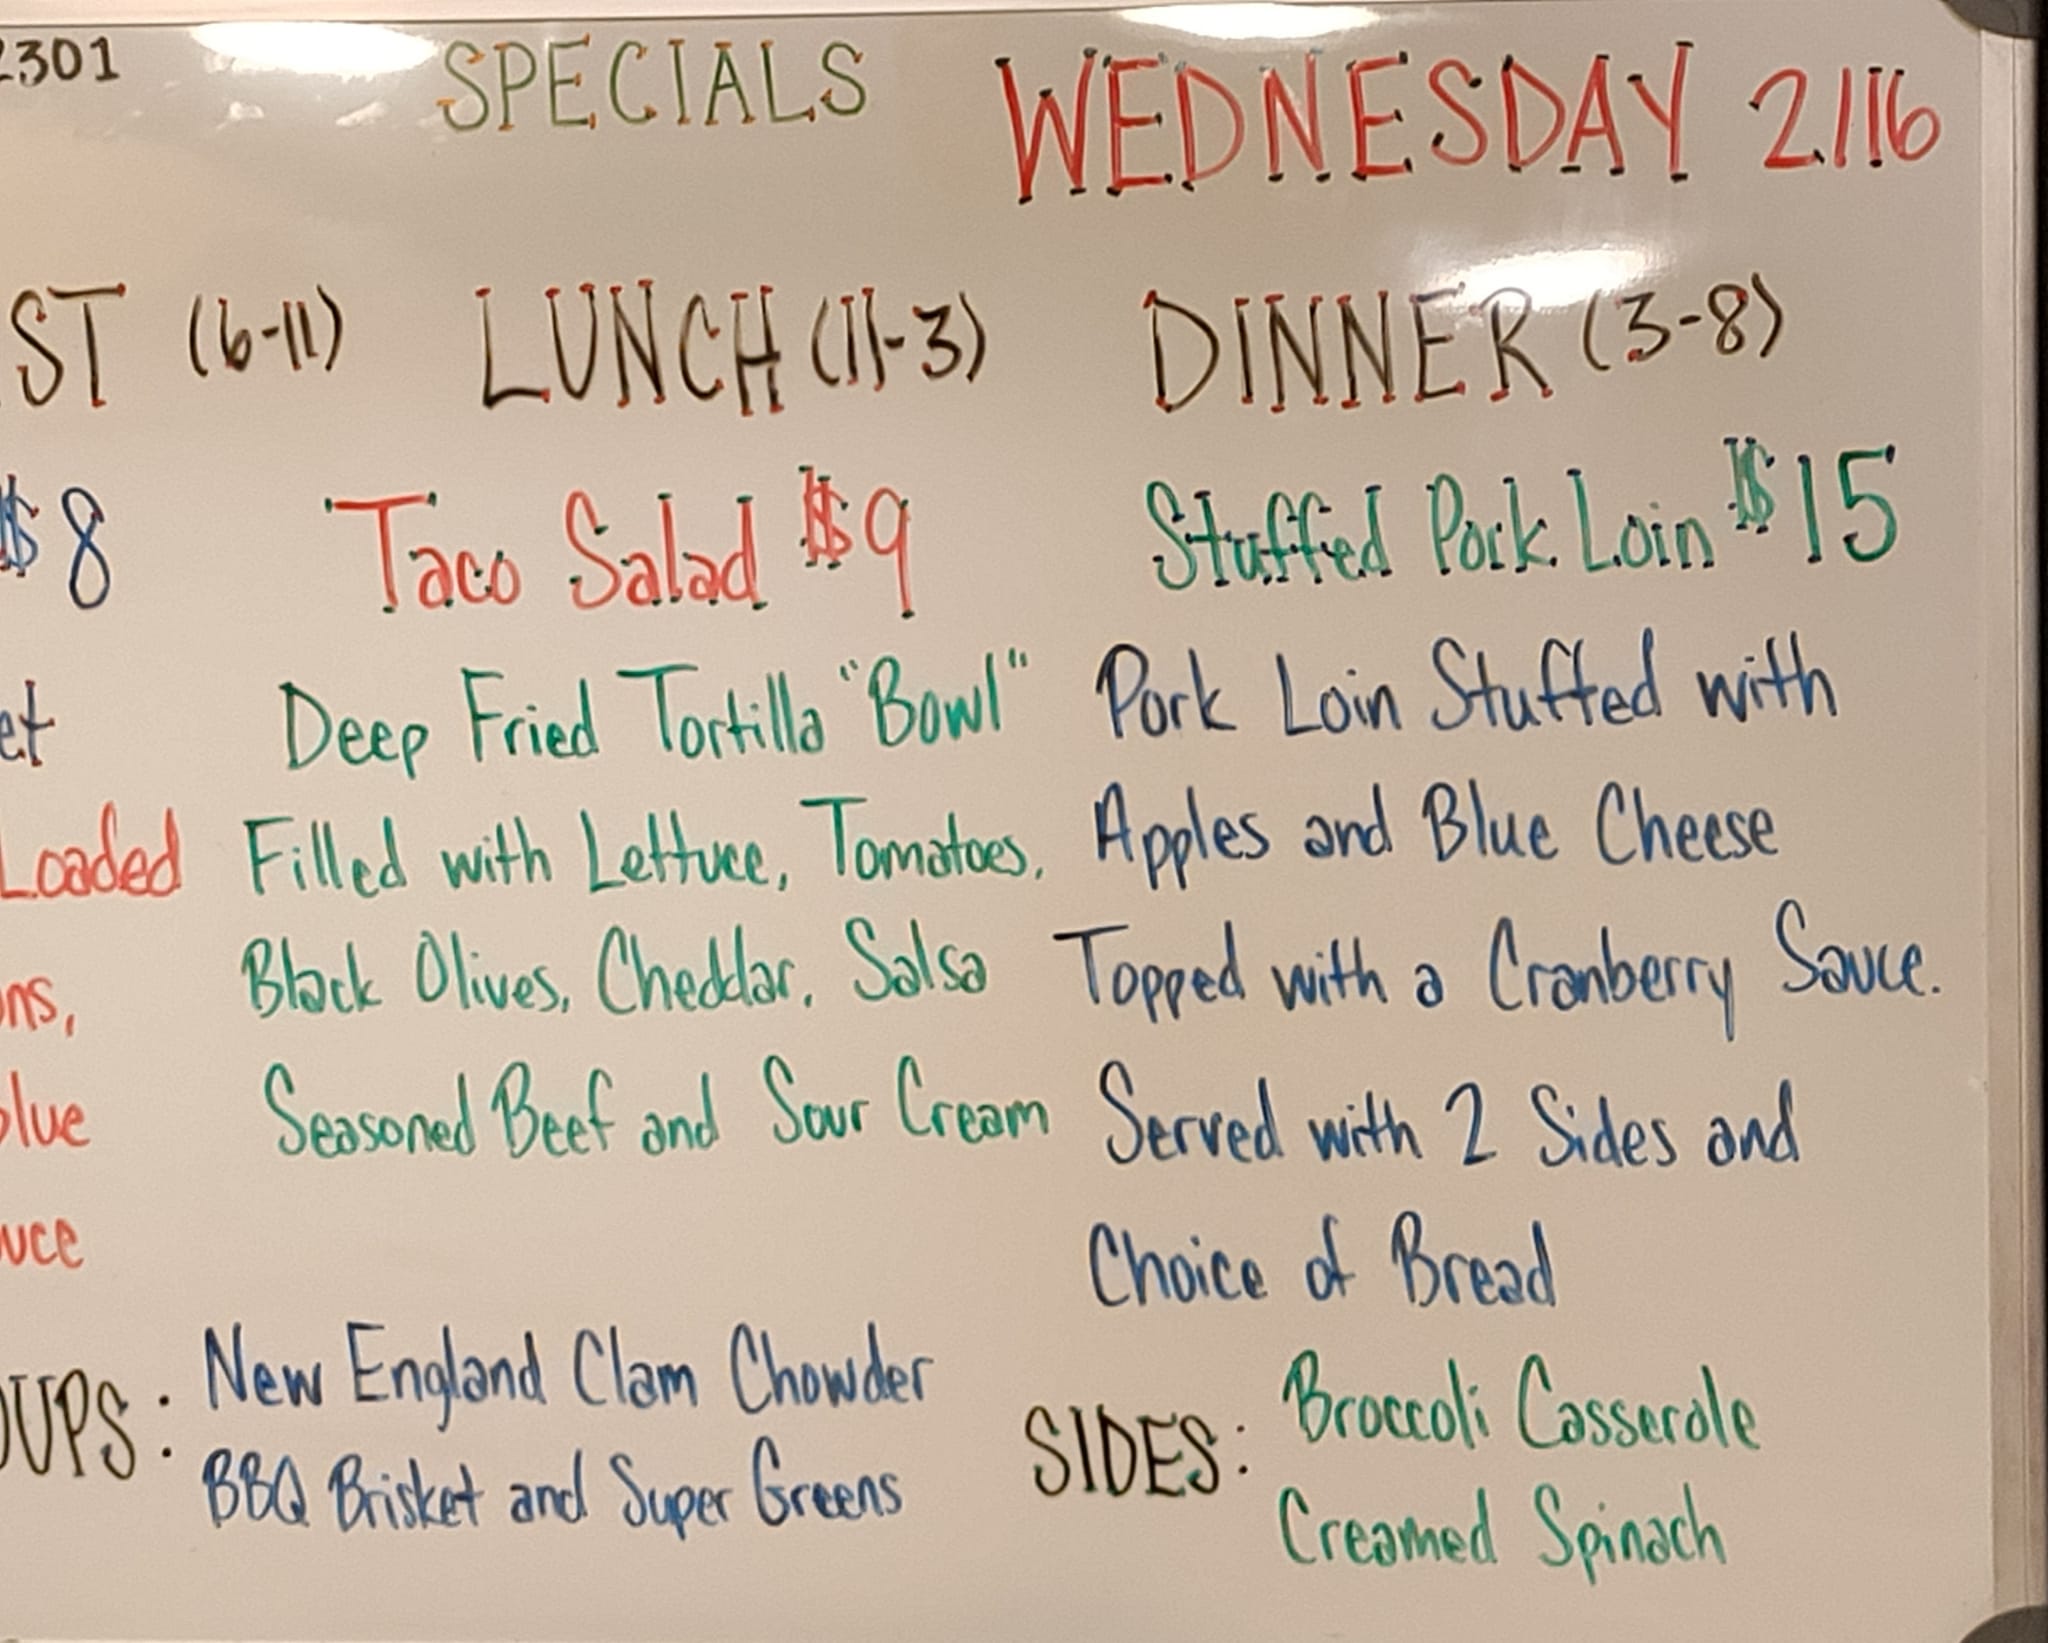 2301
SPECIALS
WEDNESDAY 2/16
ST (6-11)
$8
et
Loaded
ns,
blue
uce
LUNCH (11-3)
Taco Salad $9
Deep Fried Tortilla "Bowl"
Filled with Lettuce, Tomatoes,
Black Olives, Cheddar, Salsa
Seasoned Beef and Sour Cream
DINNER (3-8)
Stuffed Pork Loin $15
Pork Loin Stuffed with
Apples and Blue Cheese
Topped with a Cranberry Sauce.
Served with 2 Sides and
Choice of Bread
OUPS: New England Clam Chowder
BBQ Brisket and Super Greens
SIDES: Broccoli Casserole
Creamed Spinach